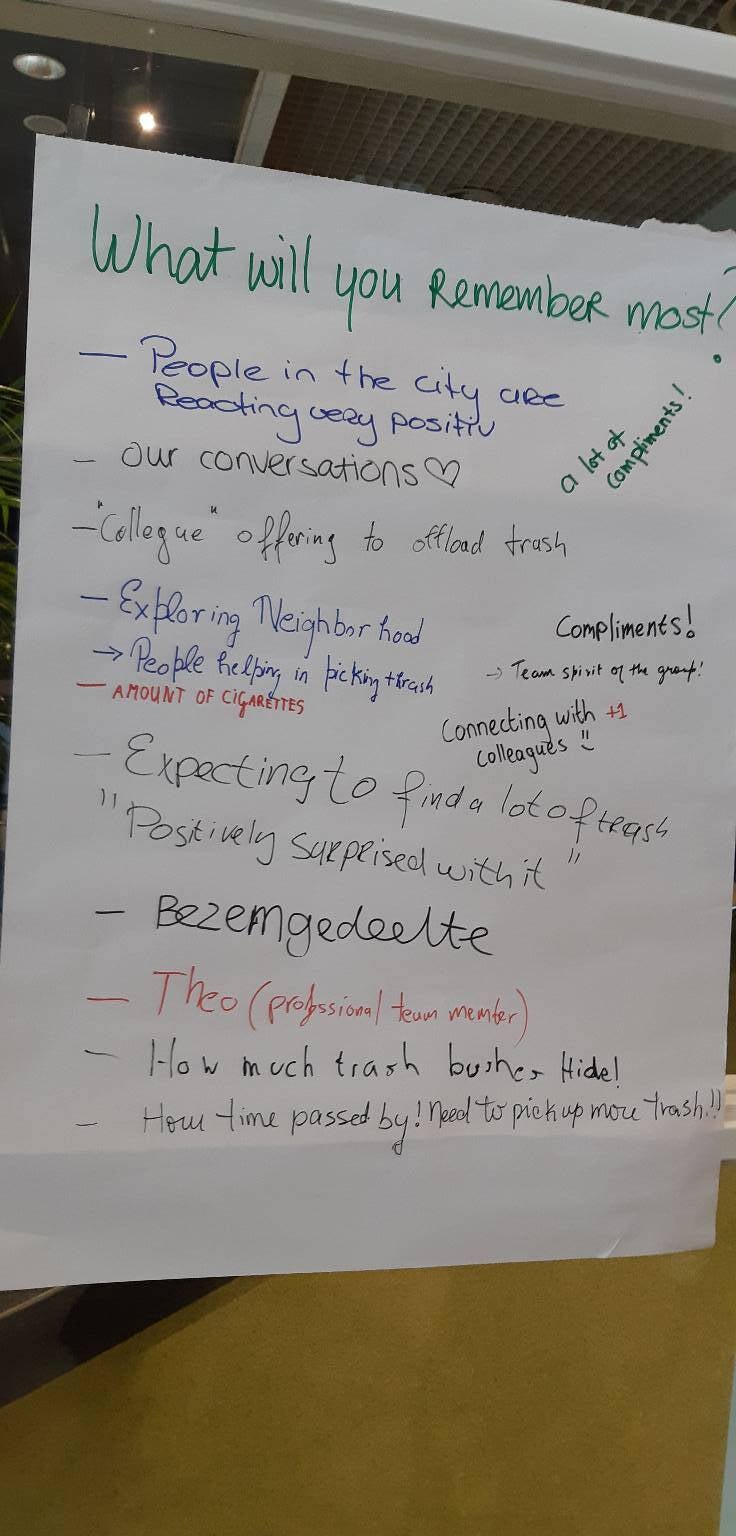 What will you Remember most?
— People in the city are
Reacting very positiv
a lot of
compliments!
— our conversations♡
— "Collegue" offering to offload trash
— Exploring Neighborhood
→ People helping in picking thrash
Compliments!
→ Team spirit of the group!
— AMOUNT OF CIGARETTES
Connecting with +1
colleagues
— Expecting to find a lot of trash
"Positively surprised with it"
— Bezemgedeelte
— Theo (professional team member)
— How much trash bushes Hide!
— How time passed by! Need to pick up more trash!!